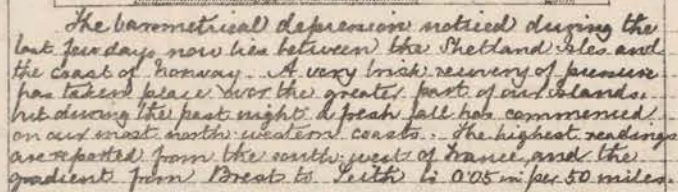 The barometrical depression noticed during the
last few days now lies between the Shetland Isles and
the coast of Norway. A very brisk recovery of pressure
has taken place over the greater part of our islands.
but during the past night a fresh fall has commenced
on our most north western coasts. The highest readings
are reported from the south west of France, and the
gradient from Brest to Leith is 0.05 in per 50 miles.